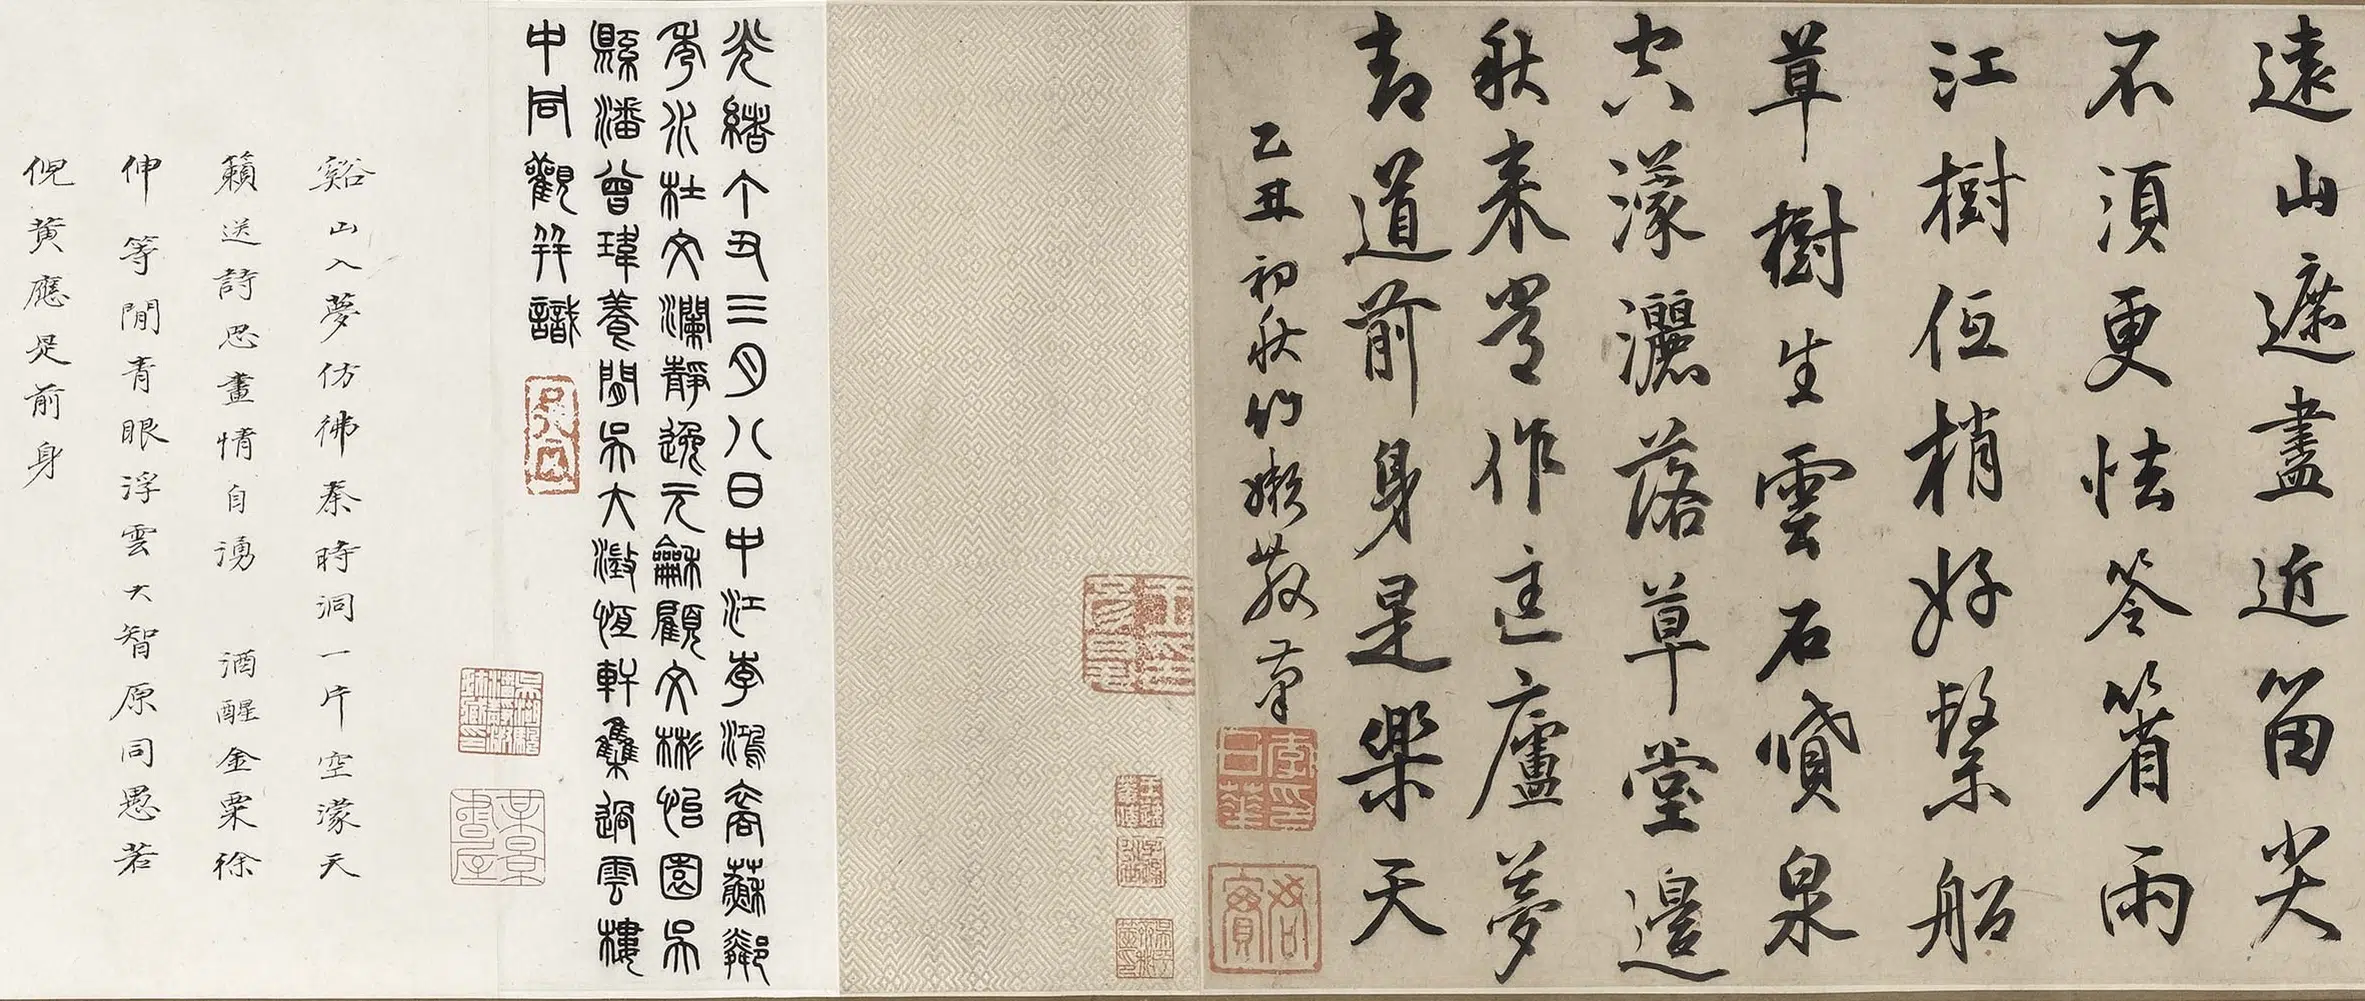 遠山遮盡近留尖
不須更怯笭箵雨
江樹低梢好繫船
草樹生雲石噴泉
空濛灑落草堂邊
秋來常作匡廬夢
却道前身是樂天
乙丑初秋竹嬾散筆
李印日華
君實
光緒丁丑三月八日中江李鴻裔蘇鄰
秀水杜文瀾靜逸元龢顧文彬怡園吳
縣潘曾瑋養閒吳大澂恆軒集過雲樓
中同觀并識
谿山入夢仿彿秦時洞一片空濛天
籟送詩思畫情自湧 酒醒金粟徐
伸等閒青眼浮雲大智原同愚若
倪黃應是前身